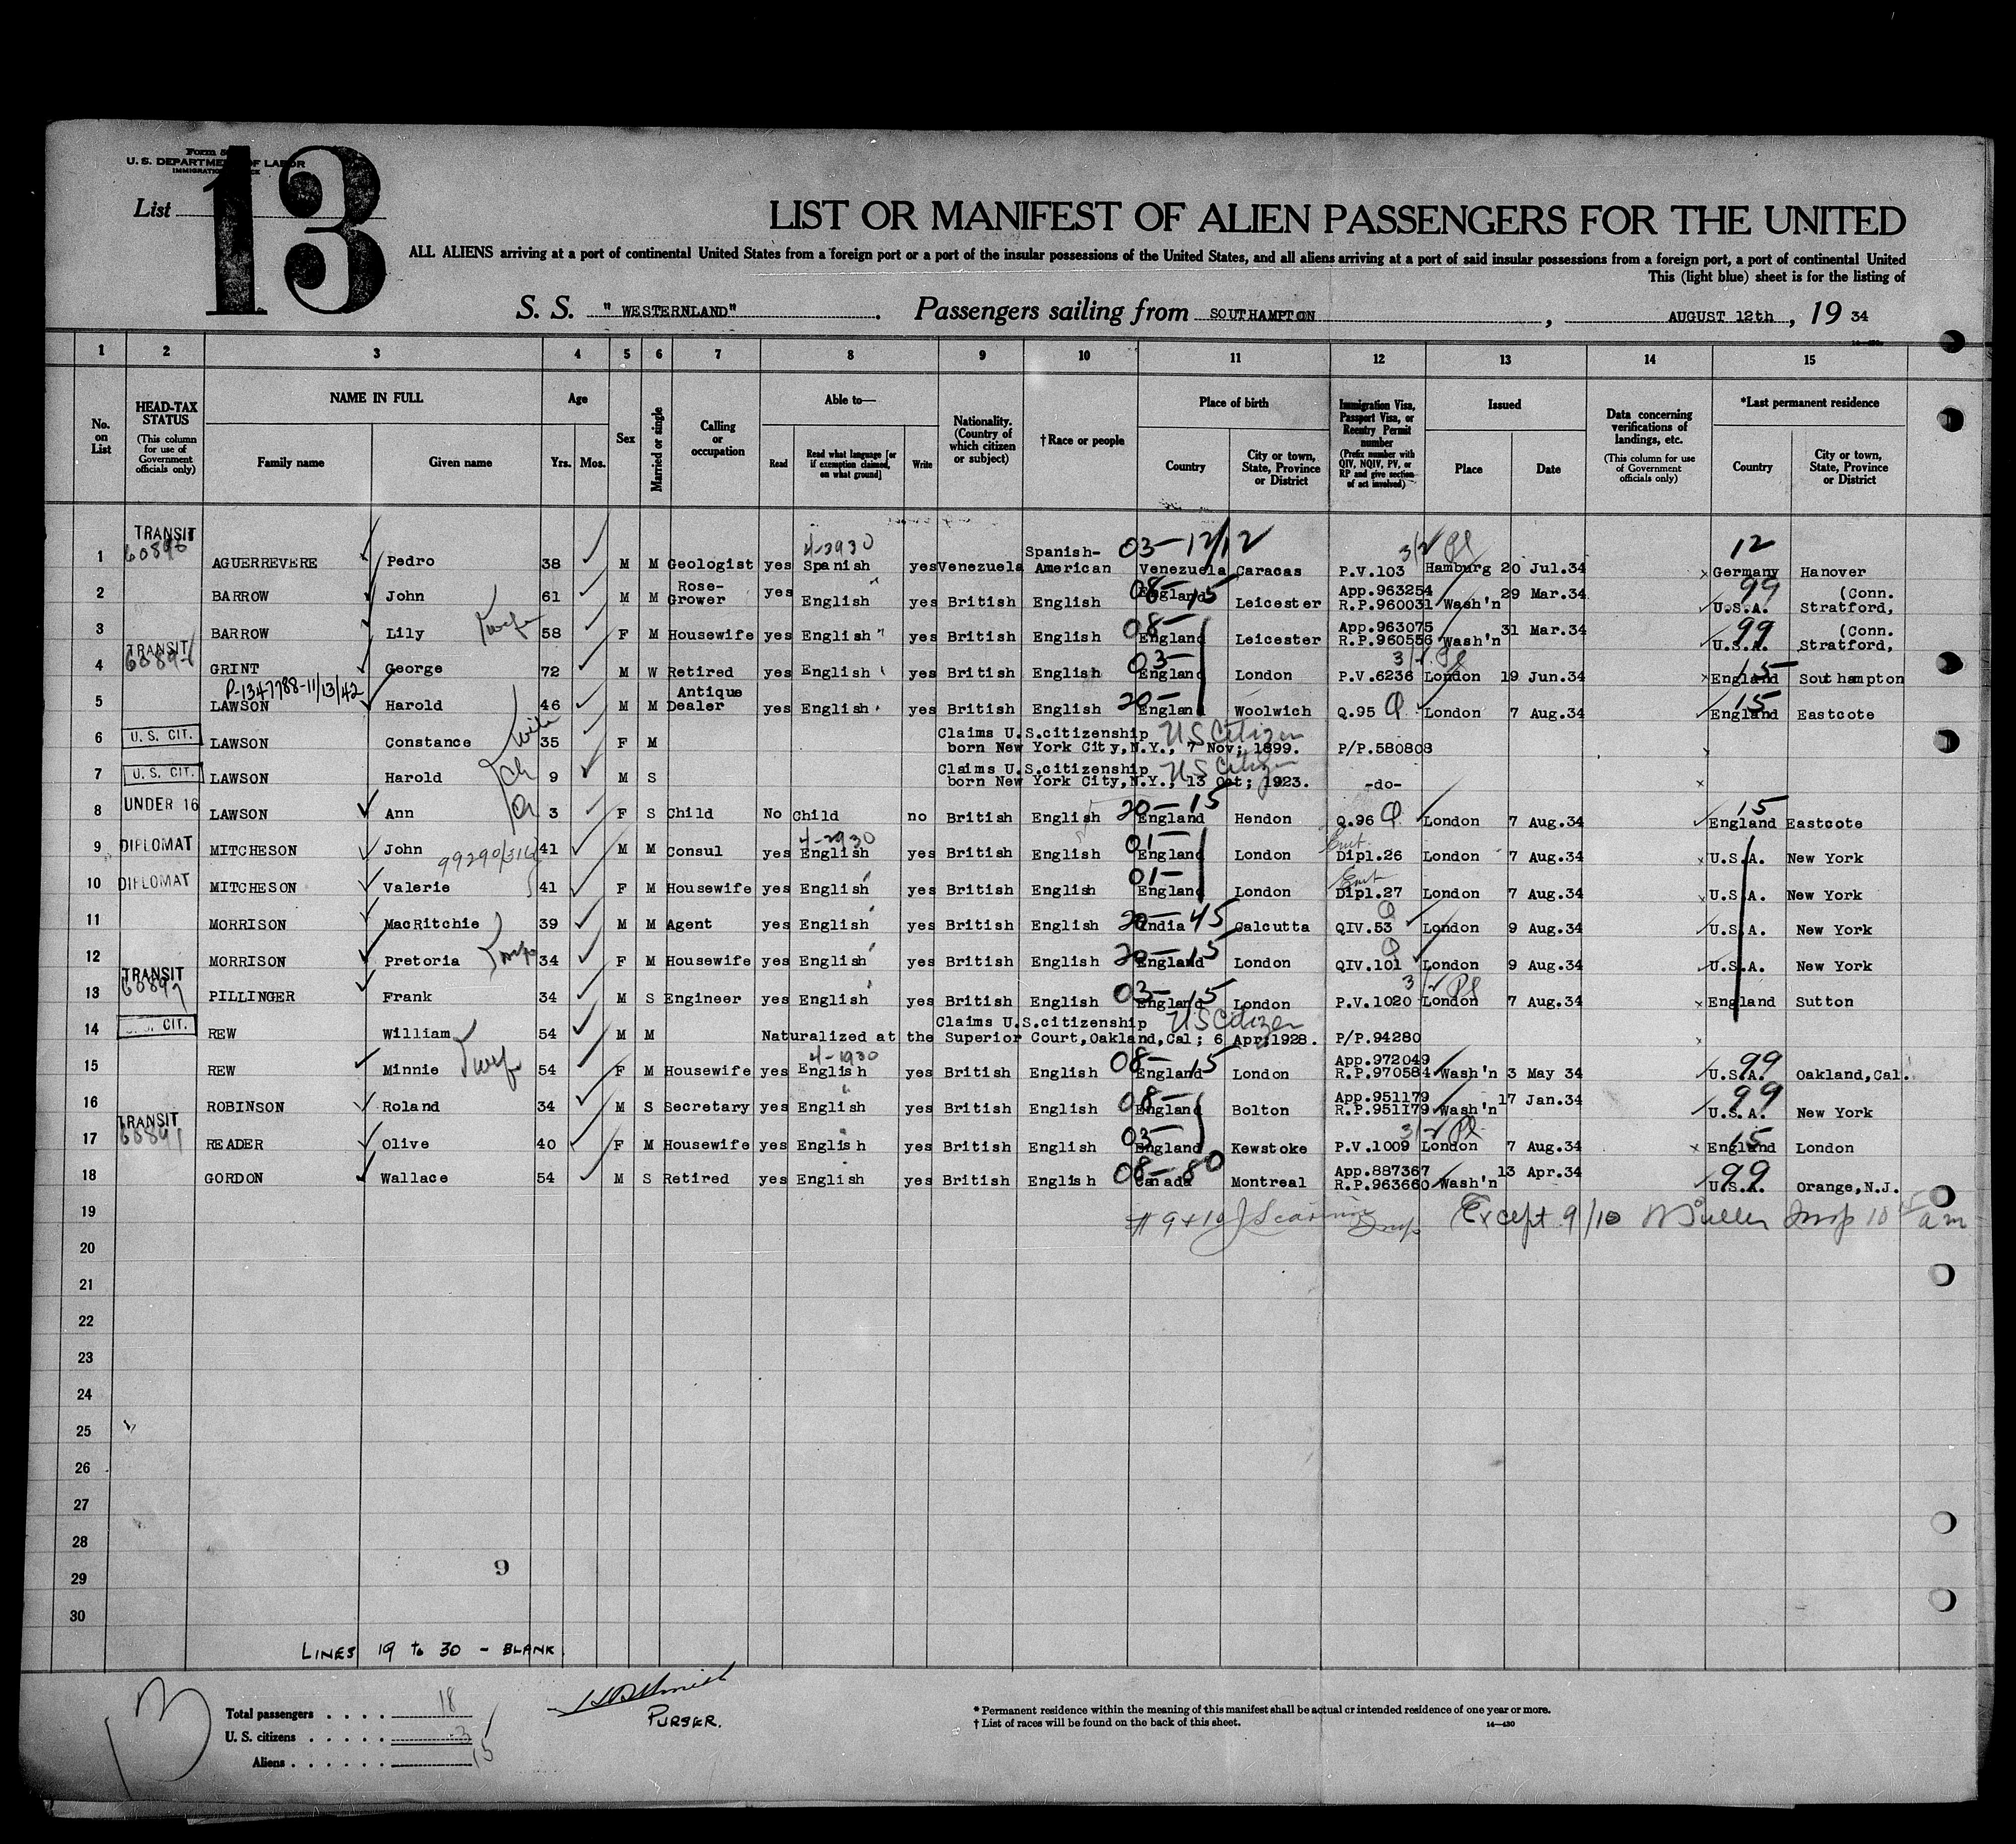 Form 5
U. S. DEPARTMENT OF LABOR
IMMIGRATION
List 13
LIST OR MANIFEST OF ALIEN PASSENGERS FOR THE UNITED
ALL ALIENS arriving at a port of continental United States from a foreign port or a port of the insular possessions of the United States, and all aliens arriving at a port of said insular possessions from a foreign port, a port of continental United
This (light blue) sheet is for the listing of
S. S. "WESTERNLAND". Passengers sailing from SOUTHAMPTON, AUGUST 12th, 19 34
1 2 3 4 5 6 7 8 9 10 11 12 13 14 15
No. on List
HEAD-TAX STATUS (This column for use of Government officials only)
NAME IN FULL Family name Given name
Age Yrs. Mos.
Sex
Married or single
Calling or occupation
Able to— Read Read what language [or if exemption claimed, on what ground] Write
Nationality. (Country of which citizen or subject)
†Race or people
Place of birth Country City or town, State, Province or District
Immigration Visa, Passport Visa, or Reentry Permit number (Prefix number with QIV, NQIV, PV, or RP and give section of act involved)
Issued Place Date
Data concerning verifications of landings, etc. (This column for use of Government officials only)
*Last permanent residence Country City or town, State, Province or District
TRANSIT 4-2930 Spanish- 03-12/12 12
1 AGUERREVERE Pedro 38 M M Geologist yes Spanish yes Venezuela American Venezuela Caracas P.V.103 Hamburg 20 Jul.34 Germany Hanover
2 BARROW John 61 M M Rose-Grower yes English yes British English 08-15 England Leicester App.963254 R.P.960031 Wash'n 29 Mar.34 99 U.S.A. (Conn. Stratford,
3 BARROW Lily wife 58 F M Housewife yes English yes British English 08- England Leicester App.963075 R.P.960556 Wash'n 31 Mar.34 99 U.S.A. (Conn. Stratford,
TRANSIT
4 GRINT George 72 M W Retired yes English yes British English 03- England London P.V.6236 London 19 Jun.34 15 England Southampton
P-1347788-11/13/42
5 LAWSON Harold 46 M M Antique Dealer yes English yes British English 20- England Woolwich Q.95 London 7 Aug.34 15 England Eastcote
6 U. S. CIT. LAWSON Constance wife 35 F M Claims U.S.citizenship US Citizen born New York City,N.Y., 7 Nov; 1899. P/P.580808
7 U. S. CIT. LAWSON Harold Ch 9 M S Claims U.S.citizenship US Citizen born New York City,N.Y., 13 Oct; 1923. -do-
8 UNDER 16 LAWSON Ann Ch 3 F S Child No Child no British English 20-15 England Hendon Q.96 London 7 Aug.34 15 England Eastcote
9 DIPLOMAT MITCHESON John 41 M M Consul yes 4-2930 English yes British English 01- England London Dipl.26 London 7 Aug.34 U.S.A. New York
10 DIPLOMAT MITCHESON Valerie 41 F M Housewife yes English yes British English 01- England London Dipl.27 London 7 Aug.34 U.S.A. New York
11 MORRISON MacRitchie 39 M M Agent yes English yes British English 20-45 India Calcutta QIV.53 London 9 Aug.34 U.S.A. New York
12 MORRISON Pretoria 34 F M Housewife yes English yes British English 20-15 England London QIV.101 London 9 Aug.34 U.S.A. New York
TRANSIT 60897
13 PILLINGER Frank 34 M S Engineer yes English yes British English 03-15 England London P.V.1020 London 7 Aug.34 England Sutton
14 CIT. REW William 54 M M Claims U.S.citizenship US Citizen Naturalized at the Superior Court,Oakland,Cal; 6 Apr;1928. P/P.94280
15 REW Minnie wife 54 F M Housewife yes 4-1930 English yes British English 08-15 England London App.972049 R.P.970584 Wash'n 3 May 34 99 U.S.A. Oakland,Cal.
16 ROBINSON Roland 34 M S Secretary yes English yes British English 08- England Bolton App.951179 R.P.951179 Wash'n 17 Jan.34 99 U.S.A. New York
TRANSIT
17 READER Olive 40 F M Housewife yes English yes British English 03- England Kewstoke P.V.1009 London 7 Aug.34 15 England London
18 GORDON Wallace 54 M S Retired yes English yes British English 08-80 Canada Montreal App.887367 R.P.963660 Wash'n 13 Apr.34 99 U.S.A. Orange,N.J.
19 # 9+10 Insp Except 9/10 Insp 10 am
20
21
22
23
24
25
26
27
28
29 9
30
LINES 19 to 30 - BLANK.
13
Total passengers . . . . 18
U. S. citizens . . . . . 3
Aliens . . . . . . 15
PURSER.
* Permanent residence within the meaning of this manifest shall be actual or intended residence of one year or more.
† List of races will be found on the back of this sheet. 14—430